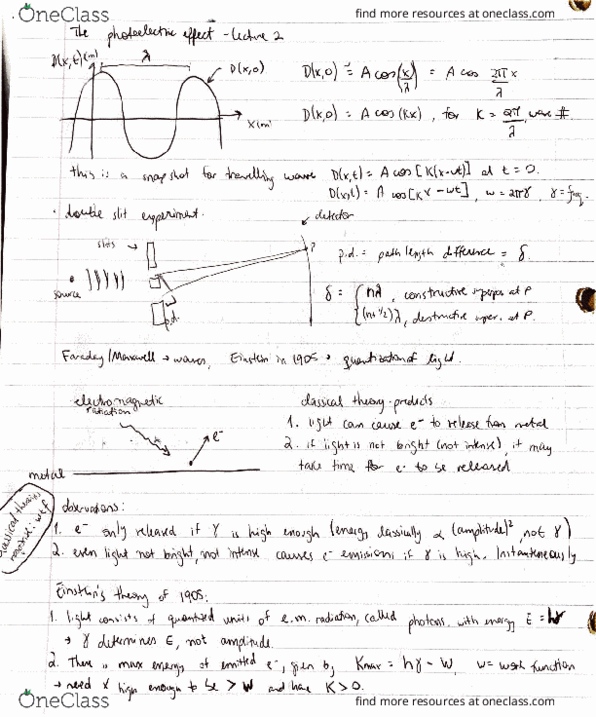 OneClass
find more resources at oneclass.com
The photoelectric effect - Lecture 2
D(x,t) (m)
λ
D(x,0)
x (m)
D(x,0) = A cos(x/λ) = A cos 2π/λ x
D(x,0) = A cos(Kx), for K = 2π/λ, wave #.
this is a snapshot for travelling wave D(x,t) = A cos[K(x-vt)] at t = 0.
D(x,t) = A cos[Kx - wt], w = 2πγ, γ = freq.
· double slit experiment.
detector
slits
source
p.d.
P
p.d. = path length difference = δ.
δ = { nλ, constructive superpos at P
(n+1/2)λ, destructive super. at P.
Faraday/Maxwell → waves, Einstein in 1905 → quantization of light.
electromagnetic
radiation
e-
metal
classical theory predicts
1. light can cause e- to release from metal
2. if light is not bright (not intense), it may
take time for e- to be released
classical theory
wtf
observations:
1. e- only released if γ is high enough (energy classically ∝ (amplitude)², not γ)
2. even light not bright, not intense causes e- emissions if γ is high. Instantaneously
Einstein's theory of 1905:
1. light consists of quantized units of e.m. radiation, called photons. with energy E = hγ
→ γ determines E, not amplitude.
2. There is max energy of emitted e-, given by Kmax = hγ - W, w = work function
→ need γ high enough to be > W and have K > 0.
OneClass
find more resources at oneclass.com